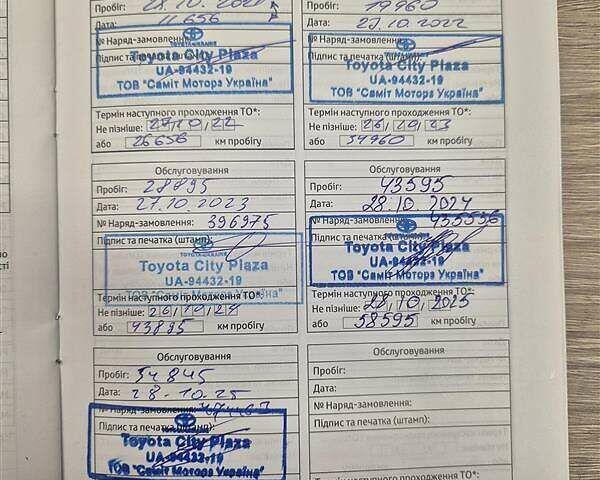 Пробіг: 28.10.2021
Дата: 11 656
№ Наряд-замовлення:
TOYOTA-UKRAINE
Підпис та печатка (штамп):
Toyota City Plaza
UA-94432-19
ТОВ "Саміт Моторз Україна"
Термін наступного проходження ТО*:
Не пізніше: 27/10/22
або 26656 км пробігу
Пробіг: 19960
Дата: 27.10.2022
№ Наряд-замовлення:
Підпис та печатка (штамп):
Toyota City Plaza
UA-94432-19
ТОВ "Саміт Моторз Україна"
Термін наступного проходження ТО*:
Не пізніше: 26/10/23
або 34960 км пробігу
Обслуговування
Пробіг: 28895
Дата: 27.10.2023
№ Наряд-замовлення: 396975
Підпис та печатка (штамп):
TOYOTA-UKRAINE
Toyota City Plaza
UA-94432-19
ТОВ "Саміт Моторз Україна"
Термін наступного проходження ТО*:
Не пізніше: 26/10/24
або 43895 км пробігу
Обслуговування
Пробіг: 43595
Дата: 28.10.2024
№ Наряд-замовлення: 435536
Підпис та печатка (штамп):
Toyota City Plaza
UA-94432-19
ТОВ "Саміт Моторз Україна"
Термін наступного проходження ТО*:
Не пізніше: 28/10/2025
або 58595 км пробігу
Обслуговування
Пробіг: 54845
Дата: 28-10.25
№ Наряд-замовлення:
Підпис та печатка (штамп):
Toyota City Plaza
UA-94432-19
ТОВ "Саміт Моторз Україна"
Обслуговування
Пробіг:
Дата:
№ Наряд-замовлення:
Підпис та печатка (штамп):
Термін наступного проходження ТО*: